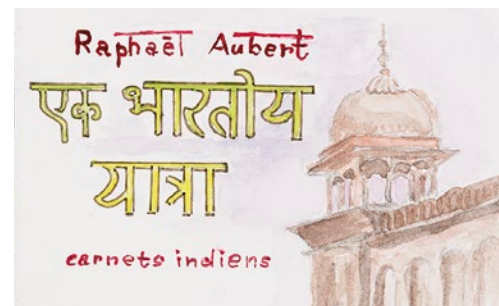 Raphaël Aubert
एक भारतीय
यात्रा
carnets indiens